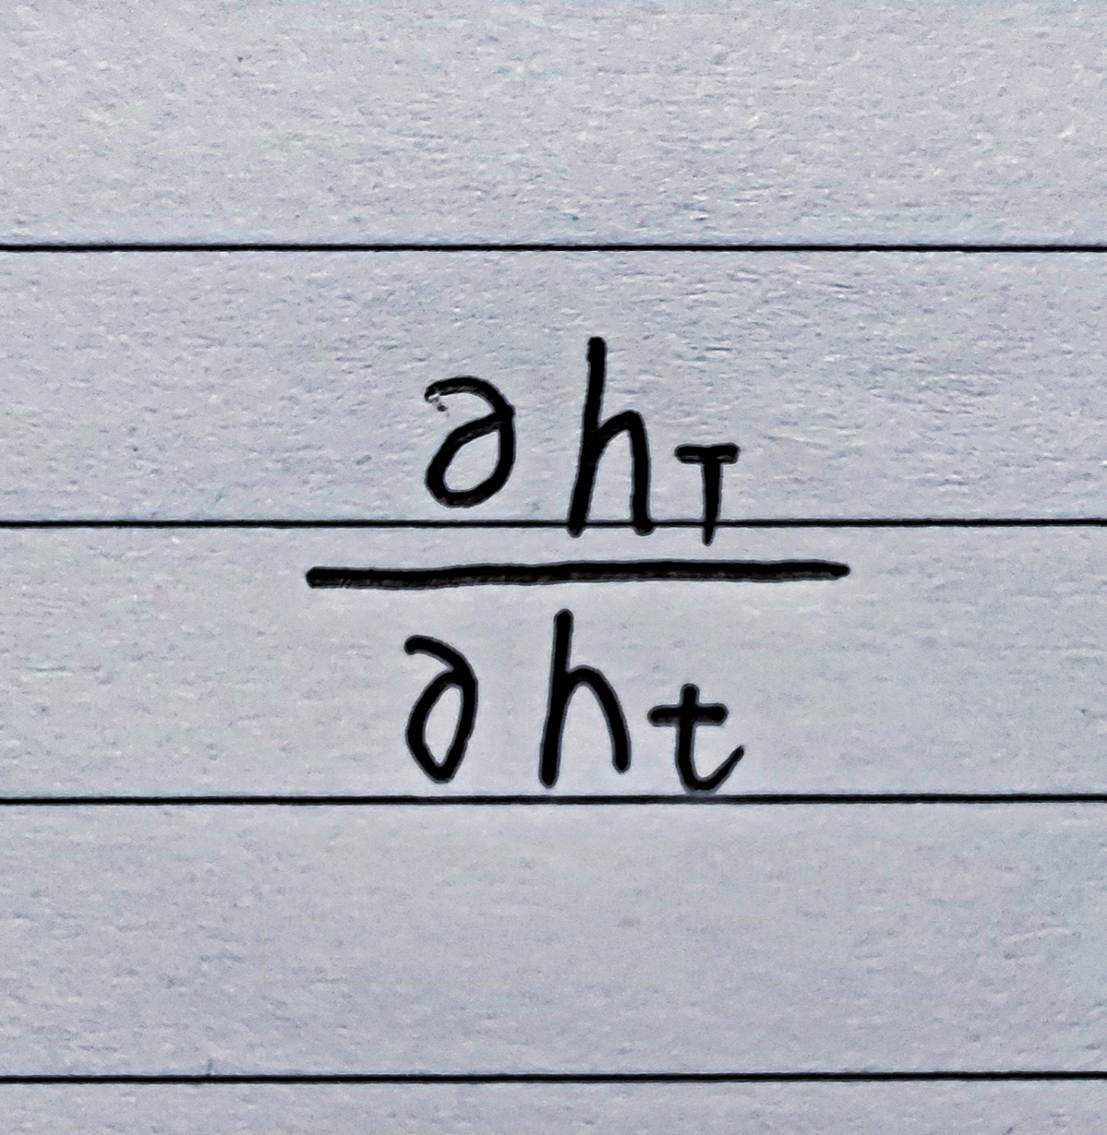 ∂h_T
∂h_t